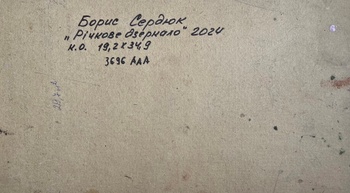 Борис Сердюк
„Річкове дзеркало" 2024
к.о. 19,2х34,9
3696 АДА